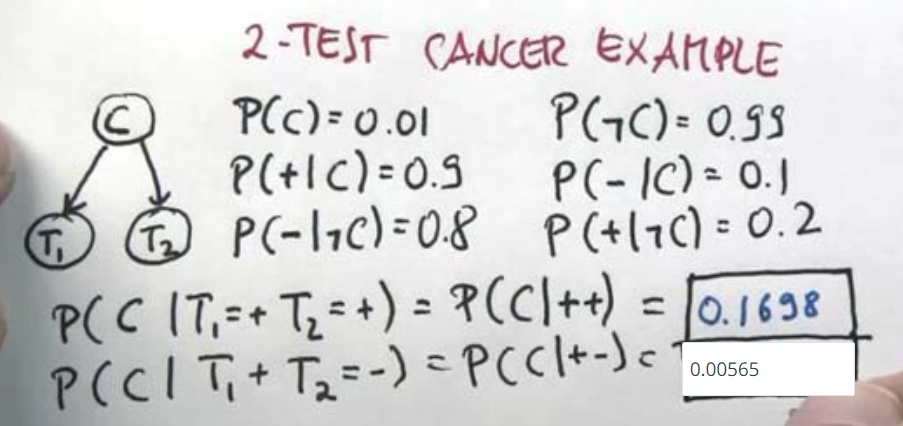 2-TEST CANCER EXAMPLE
C
P(C)=0.01 P(¬C)=0.99
P(+|C)=0.9 P(-|C)=0.1
T₁ T₂ P(-|¬C)=0.8 P(+|¬C)=0.2
P(C|T₁=+ T₂=+) = P(C|++) = 0.1698
P(C|T₁+ T₂=-) = P(C|+-) = 0.00565